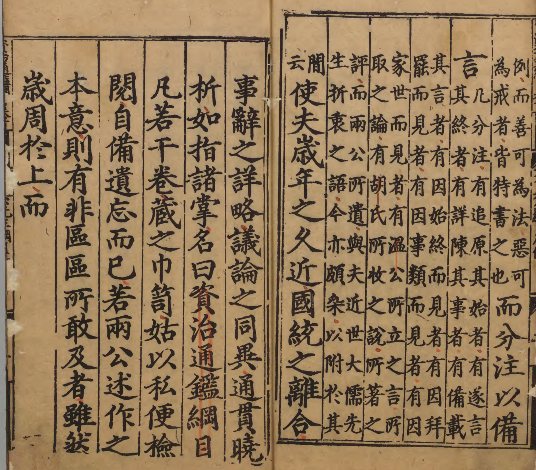 例而善可為法惡可
為戒者皆特書之也而分注以備
言凡分注有追原其始者有遂言
其終者有詳陳其事者有備載
其言者有因始終而見者有因拜
罷而見者有因事類而見者有因
家世而見者有溫公所立之言所
取之論有胡氏所收之說所著之
評而兩公所遺與夫近世大儒先
生折衷之語今亦頗采以附於其
間
云使夫歲年之久近國統之離合
事辭之詳略議論之同異通貫曉
析如指諸掌名曰資治通鑑綱目
凡若干卷藏之巾笥姑以私便檢
閱自備遺忘而已若兩公述作之
本意則有非區區所敢及者雖然
歲周於上而